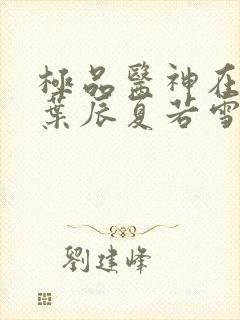 極品醫神在
葉辰夏若雪
劉建峰